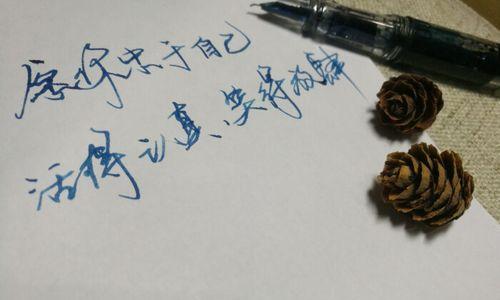 愿你忠于自己
活得认真、笑得放肆